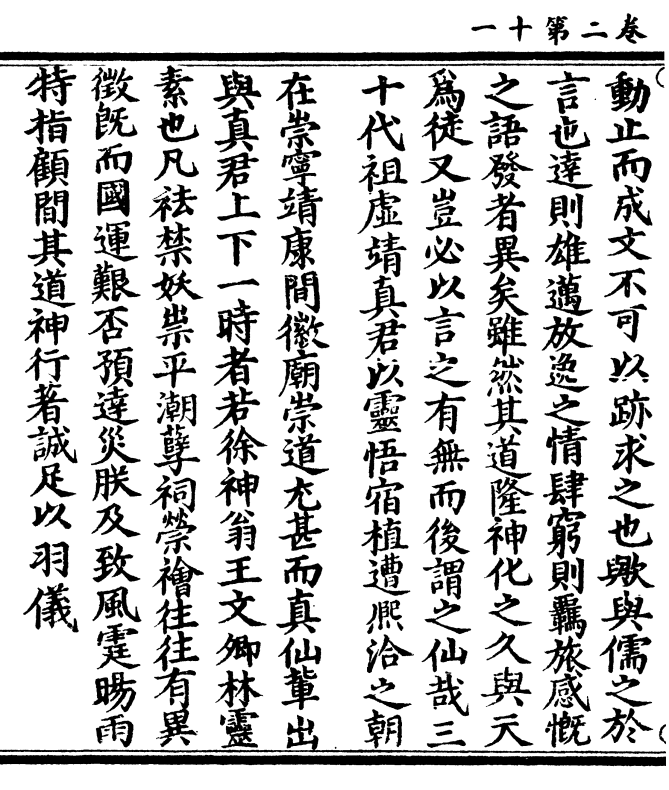 卷二第十一
動止而成文不可以跡求之也歟與儒之於
言也達則雄邁放逸之情肆窮則羈旅感慨
之語發者異矣雖然其道隆神化之久與天
爲徒又豈必以言之有無而後謂之仙哉三
十代祖虛靖真君以靈悟宿植遭熙洽之朝
在崇寧靖康間徽廟崇道尤甚而真仙輩出
與真君上下一時者若徐神翁王文卿林靈
素也凡祛禁妖祟平潮孽祠禜禬往往有異
徵旣而國運艱否預達災朕及致風霆暘雨
特指顧間其道神行著誠足以羽儀